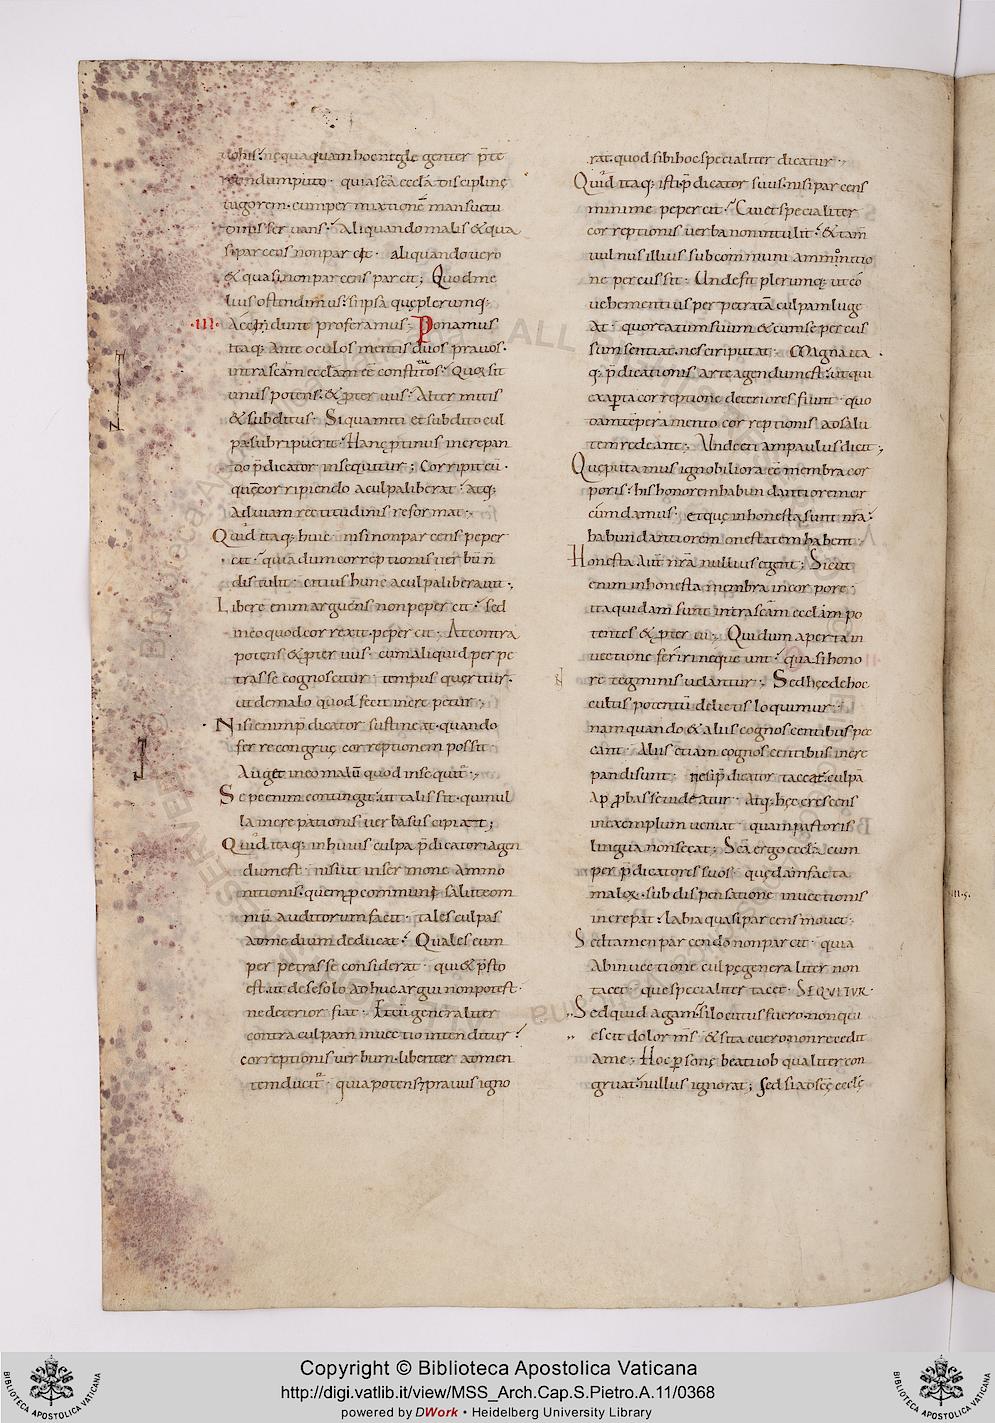 uobis: nequaquam hoc neglegenter p̄te
reundum puto · quia sc̄a eccl̄a disciplinę
uigorem · cum permixtionē mansuetu
dinis seruans · Aliquando malis & qua
si parcens non parcit · aliquando uero
& quasi non parcens parcit ; Quod me
lius ostendimus: si ipsa quę plerumq;
·III· Accidunt proferamus ; Ponamus
itaq; ante oculos mentis duos prauos ·
intra sc̄am eccl̄am cē constitutos · Quorum sit
unus potens · & p̄teruus · Alter mitis
& subditus · Si quam ti et subdito cul
pa subripuerit · Hanc p̄tinus increpan
do p̄dicator insequitur ; Corripit eū ·
quē corripiendo a culpa liberat · atq;
Ad uiam rectitudinis reformat ·
Quid itaq; huic · nisi non parcens peper
cit · quia dum correptionis uerbū n̄
distulit · citius hunc a culpa liberauit ·
Libere enim arguens non pepercit · sed
in eo quod correxit · pepercit · At contra
potens & p̄teruus · cum aliquid perpe
trasse cognoscitur · tempus quęritur ·
ut de malo quod fecit increpetur ·
Nisi enim p̄dicator sustineat · quando
ferre congruę correptionem possit ·
Auget in eo malū quod insequit̄ ·
Sepe enim contingit · ut talis sit · qui nul
la increpationis uerba suscipiat ;
Quid itaq; in huius culpa p̄dicatori agen
dum est · nisi ut in sermone Ammo
nitionis · quem p̄ communi salute om
niū auditorum facit · tales culpas
ad medium deducat · Quales eum
perpetrasse considerat · qui & p̄sto
est · ut de se solo adhuc argui non potest ·
ne deterior fiat · Et cū generaliter
contra culpam inuectio intenditur ·
correptionis uerbum · libenter ad men
tem ducit̄ · quia potens prauus igno
rat · quod sibi hoc specialiter dicatur ·
Quid itaq; isti p̄dicator suus · nisi parcens
minime pepercit · Cui et specialiter
correptionis uerba non intulit · & tam̄
uulnus illius sub communi ammonitio
ne percussit · Unde fit plerumq; ut eo
uehementius perpetratā culpam luge
At · quo reatum suum & cum se percus
sum sentiat · nesciri putat · Magna ita
q; p̄dicationis arte agendum est · ut qui
ex aperta correptione deteriores fiunt · quo
dam temperamento correptionis ad salu
tem redeant · Unde etiam paulus dicit ·
Quę putamus ignobiliora cē membra cor
poris · his honorem habundantiorem cir
cūmdamus · et quę inhonesta sunt n̄ra ·
habundantiorem onestatem habent ·
Honesta Aut̄ n̄ra nullius egent ; Sicut
enim inhonesta membra in corpore ·
ita quidam sunt intra sc̄am eccl̄am po
tentes & p̄terui · Qui dum aperta in
uectione feriri nequeunt · quasi hono
re tegminis uelantur · Sed hęc de hoc
cultis potentū delictis loquimur ·
nam quando & aliis cognoscentibus pec
cant · Aliis etiam cognoscentibus incre
pandi sunt · ne si p̄dicator taceat · culpā
Approbasse uideatur · Atq; hęc crescens
in exemplum ueniat · quam pastoris
lingua non secat ; Sc̄a ergo eccl̄a cum
per p̄dicatores suos · quędam facta
malorum · sub dispensatione inuectionis
increpat · labia quasi parcens mouet ·
Sed tamen parcendo non parcit · quia
Ab inuectione culpę generaliter non
tacet · que specialiter tacet · SEQUITUR ·
Sed quid agam · si locutus fuero · non qui
escit dolor m̄s · & si tacuero non recedit
Ame · Hoc p̄sonę beati iob qualiter con
gruat · nullus ignorat ; sed si ad sc̄ę eccl̄ę
Copyright © Biblioteca Apostolica Vaticana
http://digi.vatlib.it/view/MSS_Arch.Cap.S.Pietro.A.11/0368
powered by DWork • Heidelberg University Library
BIBLIOTECA APOSTOLICA VATICANA
BIBLIOTECA APOSTOLICA VATICANA